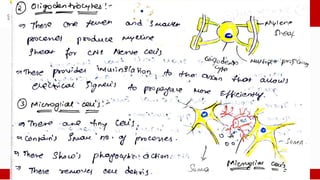 ② Oligodentrocytes :-
→ There are fewer and smaller
processes produce myeline
Sheaf for CNS Nerve cells
→ There provides insulation, to the axon that allows
electrical signals to propagate more efficiently.
③ Microglial cells :-
→ There are tiny cells,
→ contains small no. of processes.
→ There shows phagocytic action.
→ These removes cell debris.
Myeline
Sheaf
Soma
Soma
Microglial cells